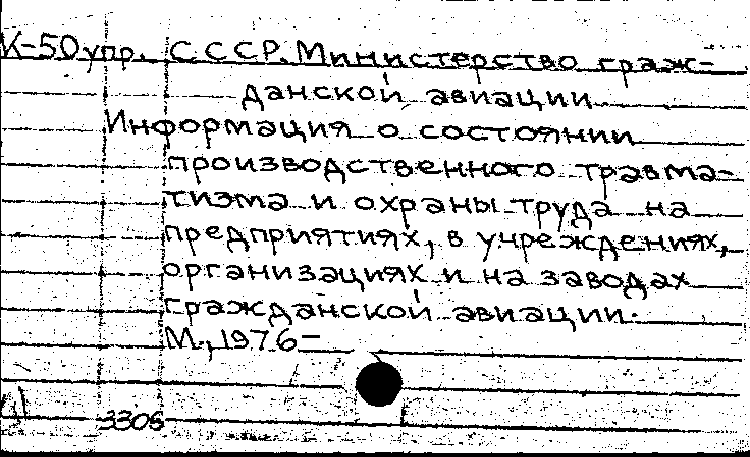 К-50упр. СССР. Министерство граж-
данской авиации
Информация о состоянии
производственного травма-
тизма и охраны труда на
предприятиях, в учреждениях,
организациях и на заводах
гражданской авиации.
М., 1976-
3305